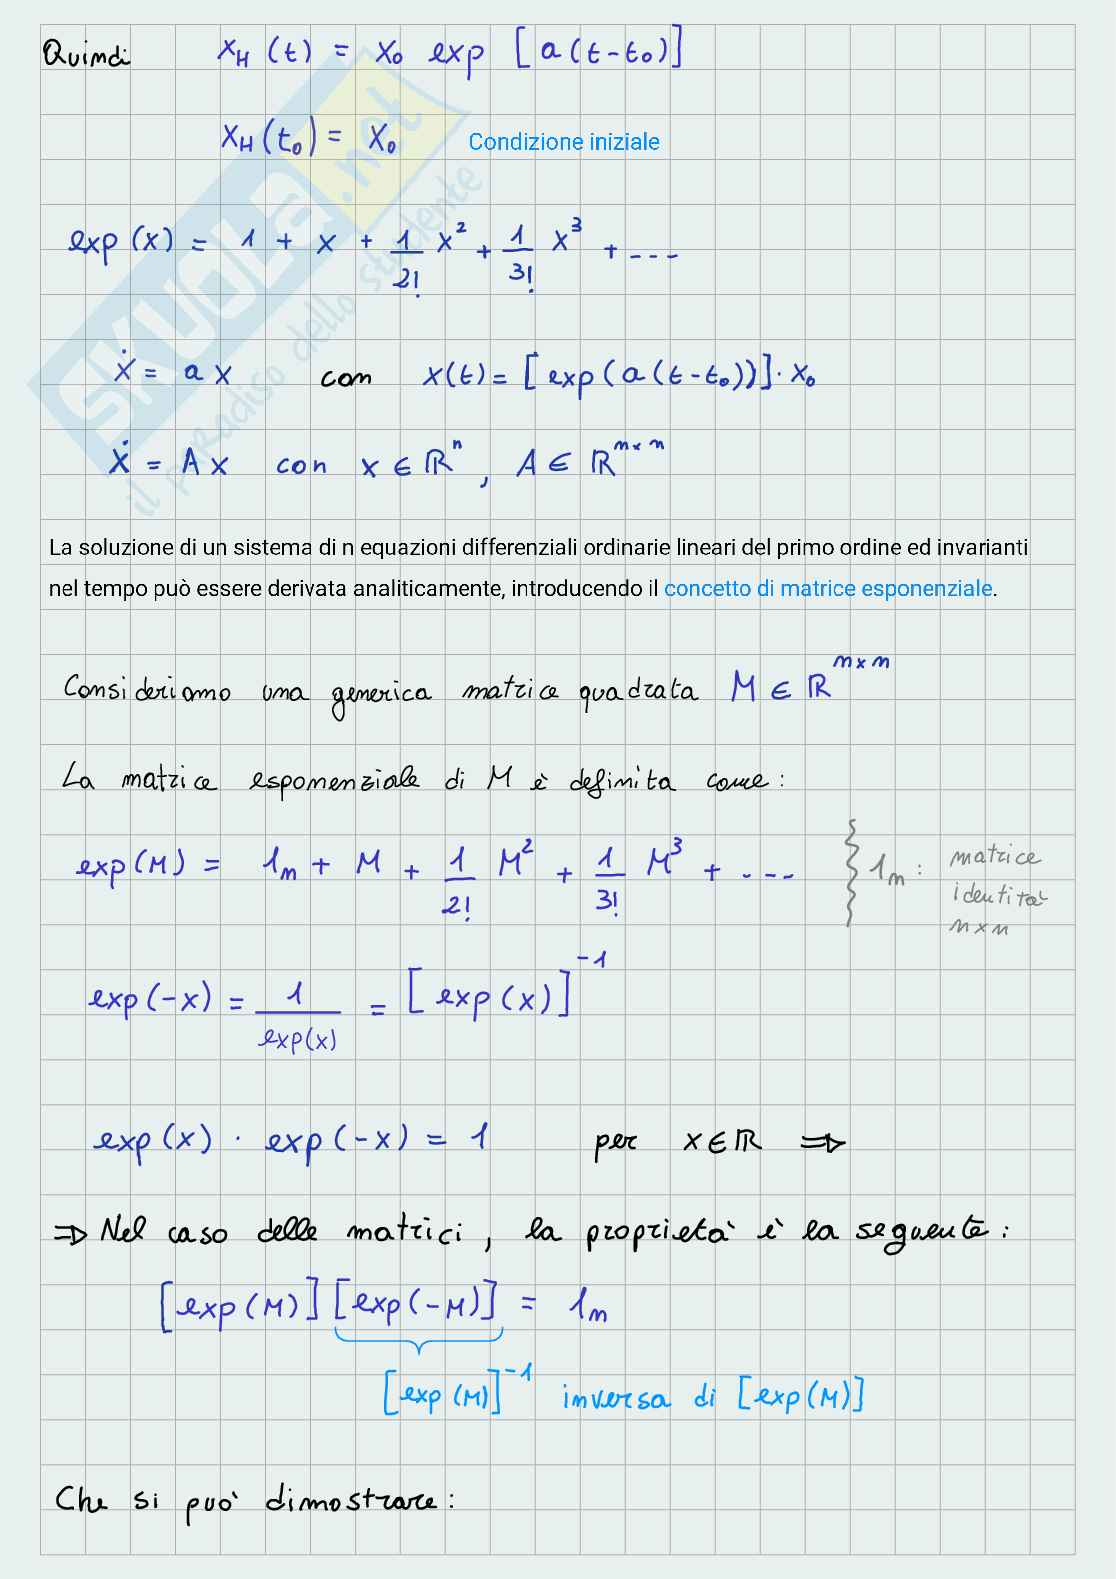 Quindi x_H (t) = x_0 exp [a(t-t_0)]
x_H(t_0) = x_0 Condizione iniziale
exp(x) = 1 + x + 1/2! x^2 + 1/3! x^3 + ---
ẋ = a x con x(t) = [exp(a(t-t_0))]·x_0
ẋ = A x con x ∈ ℝ^n, A ∈ ℝ^{n×n}
La soluzione di un sistema di n equazioni differenziali ordinarie lineari del primo ordine ed invarianti
nel tempo può essere derivata analiticamente, introducendo il concetto di matrice esponenziale.
Consideriamo una generica matrice quadrata M ∈ ℝ^{n×n}
La matrice esponenziale di M è definita come:
exp(M) = 1_n + M + 1/2! M^2 + 1/3! M^3 + --- 1_n : matrice
identità
n×n
exp(-x) = 1/exp(x) = [exp(x)]^{-1}
exp(x) · exp(-x) = 1 per x∈ℝ ⇒
⇒ Nel caso delle matrici, la proprietà è la seguente:
[exp(M)] [exp(-M)] = 1_n
[exp(M)]^{-1} inversa di [exp(M)]
Che si può dimostrare:
SKUOLA.net
il paradiso dello studente